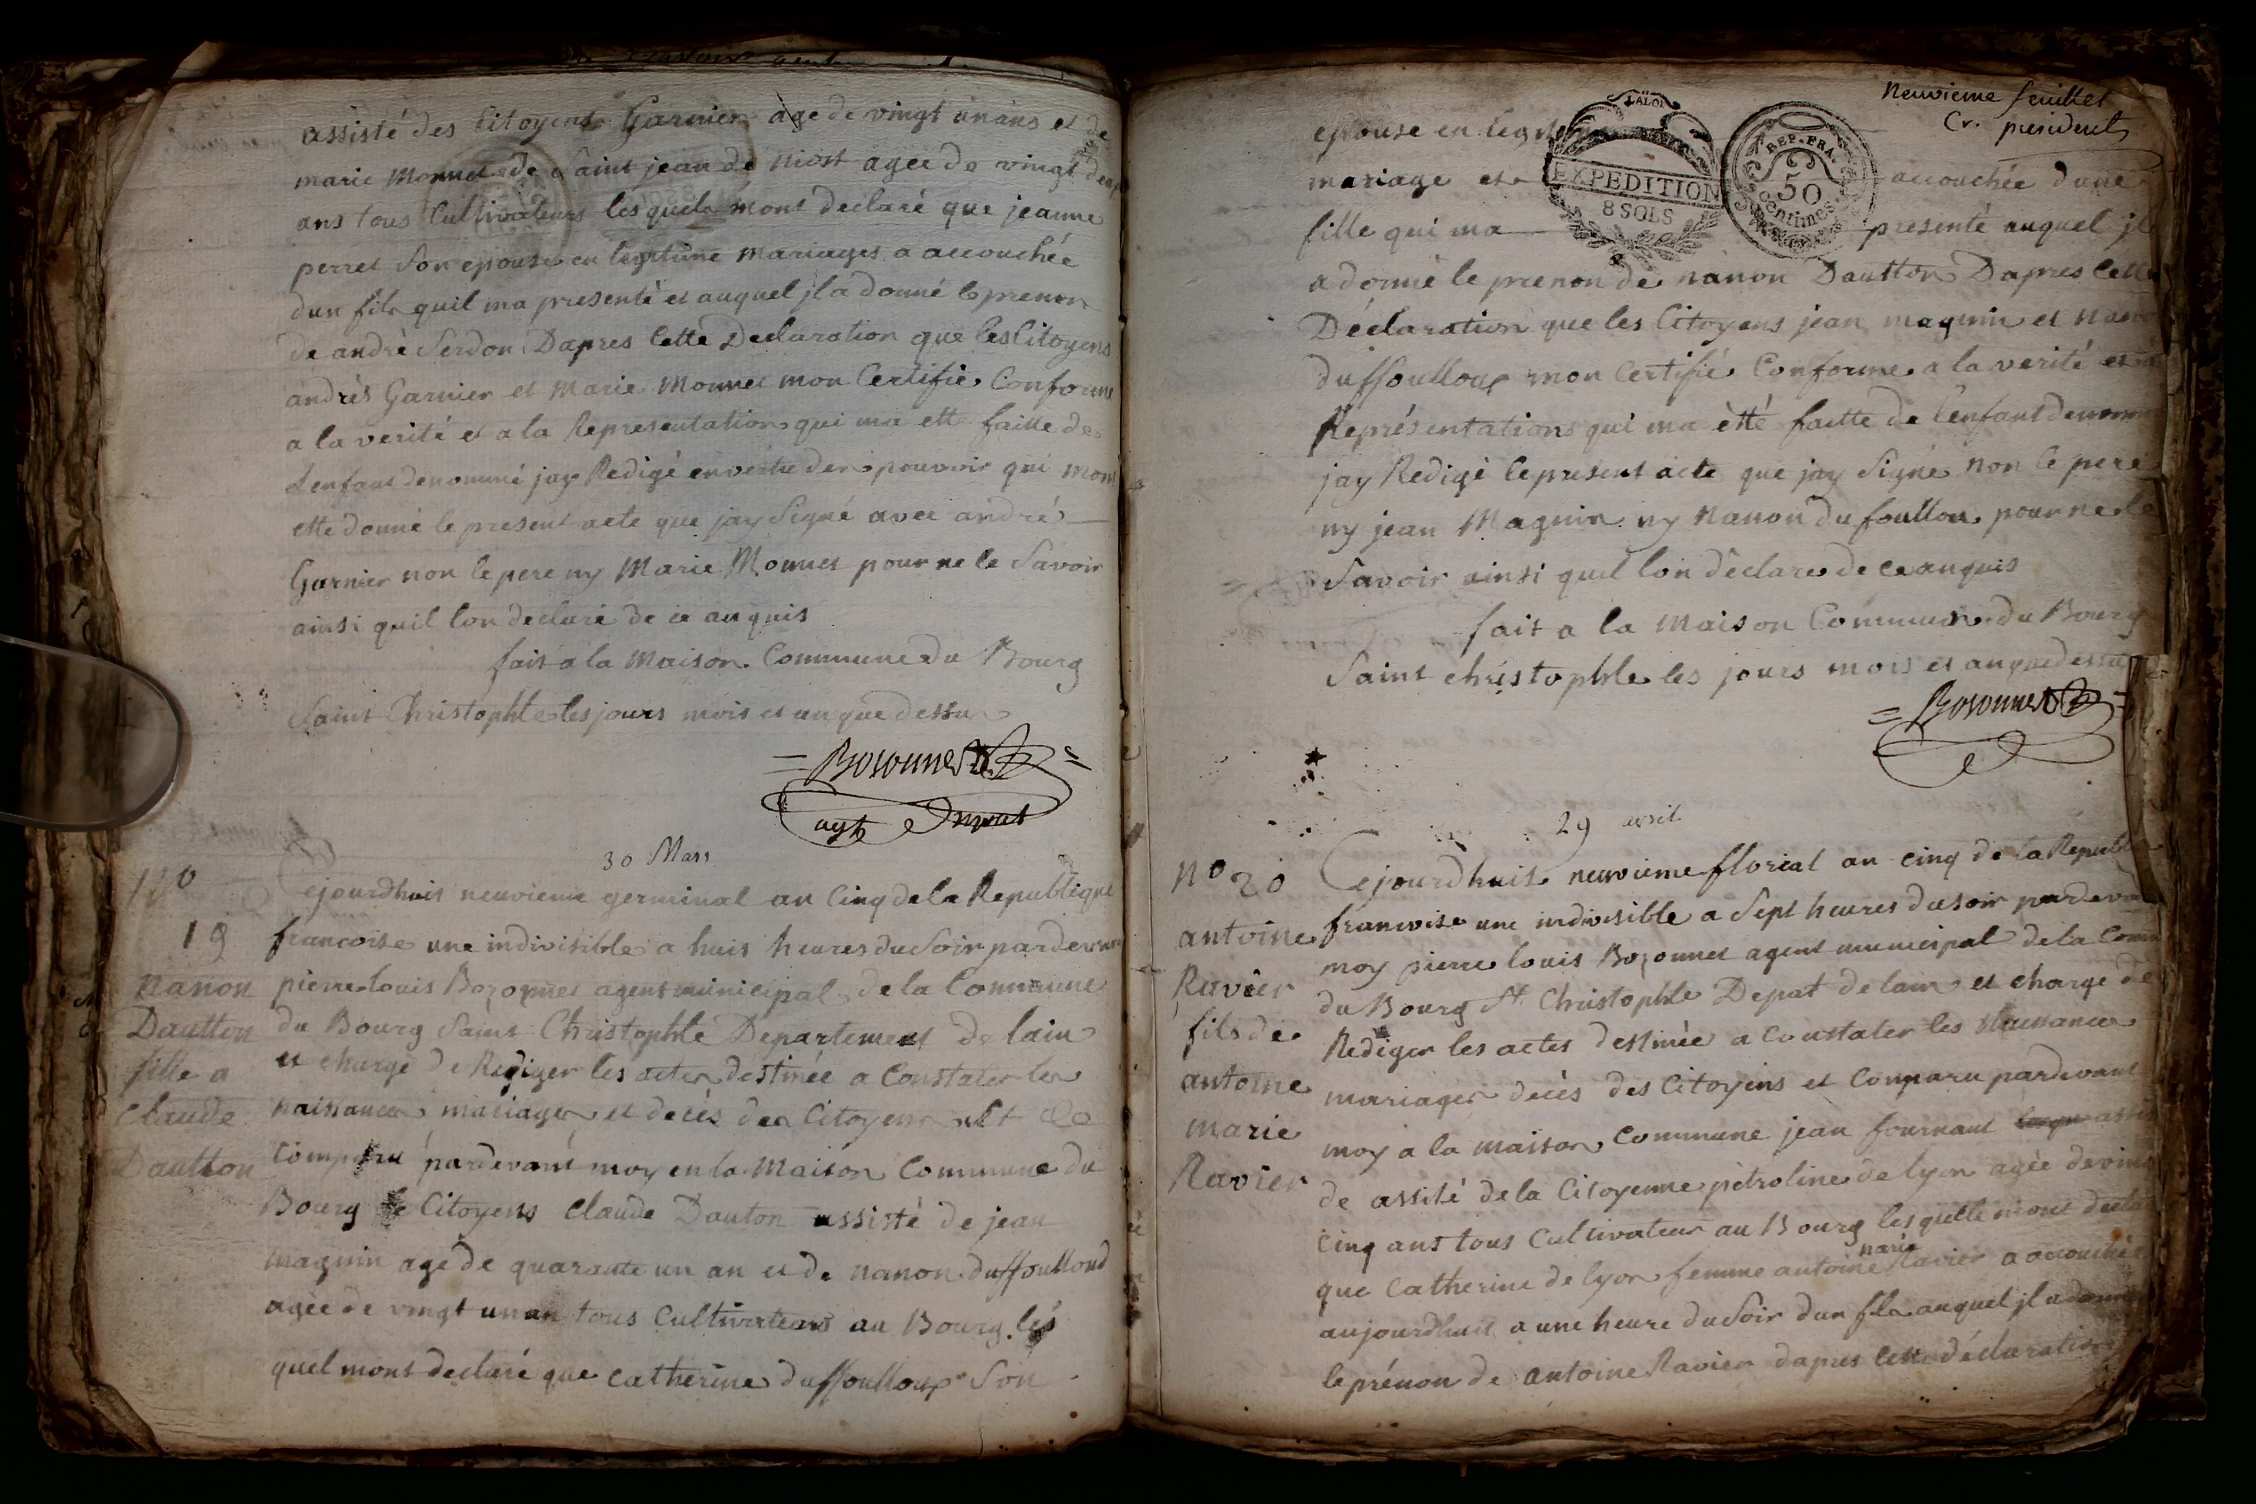 assisté des Citoyens Garnier age de vingt un ans et de
marie Monnet de Saint jean de niost agée de vingt deux
ans tous Cultivateurs lesquels mont declaré que jeanne
perret Son epouse en legitime mariages a accouchée
dun fils quil ma presenté et auquel jl a donné le prenon
de andrè Serdon Dapres Cette Declaration que les Citoyens
andrés Garnier et Marie Monnet mon Certifié Conforme
a la verité et a la Representation qui ma etté faitte de
Lenfant denommé jay Redigé en vertu des pouvoir qui mont
etté donné le present acte que jay Signé avec andré
Garnier non le pere ny Marie Monnet pour ne le Savoir
ainsi quil lon declaré de ce anquis
fait a la Maison Commune du Bourg
Saint Christophle les jours mois et an que dessus
= Bozonnet =
agt
30 Mars
No
19
Nanon
Dautton
fille a
Claude
Dautton
Cejourdhuis neuvieme germinal an Cinq de la Republique
francoise une indivisible a huit heures du Soir pardevant
pierre louis Bozonnet agent municipal de la Commune
du Bourg Saint Christophle Departement de lain
et chargé de Rediger les actes destinée a Constater les
naissances mariages et decès des Citoyens
Comparu pardevant moy en la Maison Commune du
Bourg le Citoyens Claude Dauton assisté de jean
magnin age de quarante un an et de nanon duffoulloud
agée de vingt un an tous Cultivateurs au Bourg les
quel mont declaré que Catherine duffoulloux Son
Neuvieme feuillet
Cr. president
LA LOI
EXPEDITION
8 SOLS
REP. FRA.
50
centimes
epouse en legitime
mariage et accouchée dune
fille qui ma presenté auquel jl
a donné le prenon de nanon Dautton Dapres Cette
Déclaration que les Citoyens jean magnin et Nanon
duffoulloux mon Certifié Conforme a la verité et a
Représentation qui ma étté faitte de Lenfant denommé
jay Redigé le present acte que jay Signé non le pere
ny jean Magnin ny Nanon dufoullou pour ne le
Savoir ainsi quil lon déclaré de ce anquis
fait a la Maison Commune du Bourg
Saint Christophle les jours mois et an que dessus
= Bozonnet =
29 avril
No 20
antoine
Ravier
fils de
antoine
marie
Ravier
Cejourdhuit neuvieme florial an cinq de la Republi
francoise une indivisible a Sept heures du soir pardevant
moy pierre louis Bozonnet agent municipal de la Comm
du Bourg St Christophle Depat de lain et chargé de
Rediger les actes destinée a Constater les Naissances
mariages decès des Citoyens et Comparu pardevant
moy a la maison Commune jean fournant assis
de assité de la Citoyenne petroline de lyon agée de vingt
Cinq ans tous Cultivateur au Bourg lesquelle mont declaré
que Catherine de lyon femme antoine marie Ravier a accouchée
aujourdhuit a une heure du Soir dun fls auquel jl a donné
le prénon de antoine Ravier dapres Cette déclaration